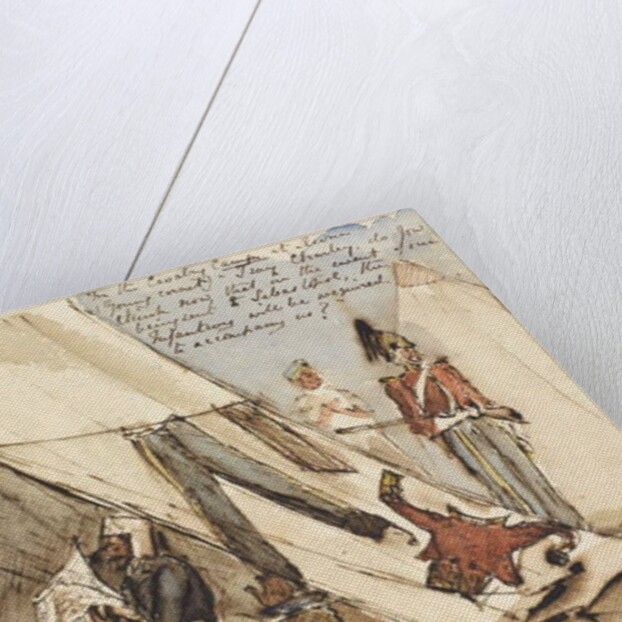 In the Cavalry Camp
(Young cornet) - I say Charley, do you
think now that in the event of our
being sent to Sebastopol, the
Infantry will be required
to accompany us?